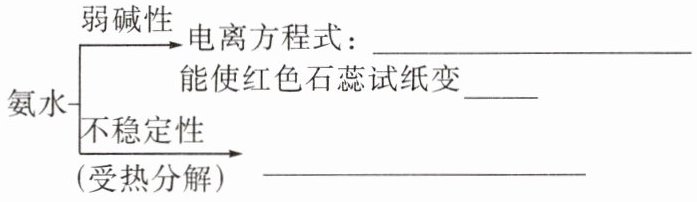 弱碱性
电离方程式：
能使红色石蕊试纸变
氨水
不稳定性
(受热分解)